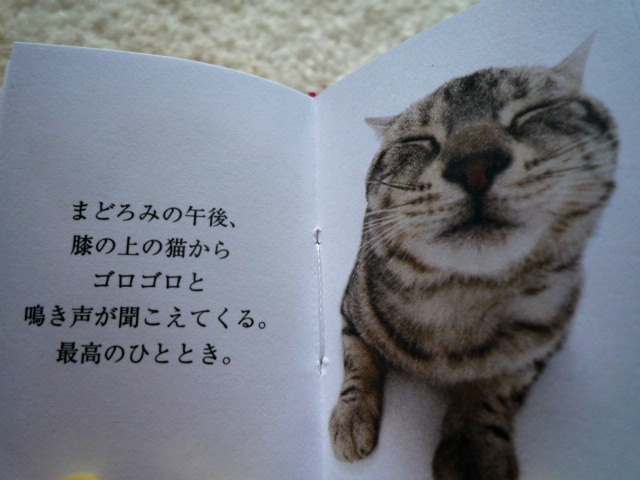 まどろみの午後、
膝の上の猫から
ゴロゴロと
鳴き声が聞こえてくる。
最高のひととき。